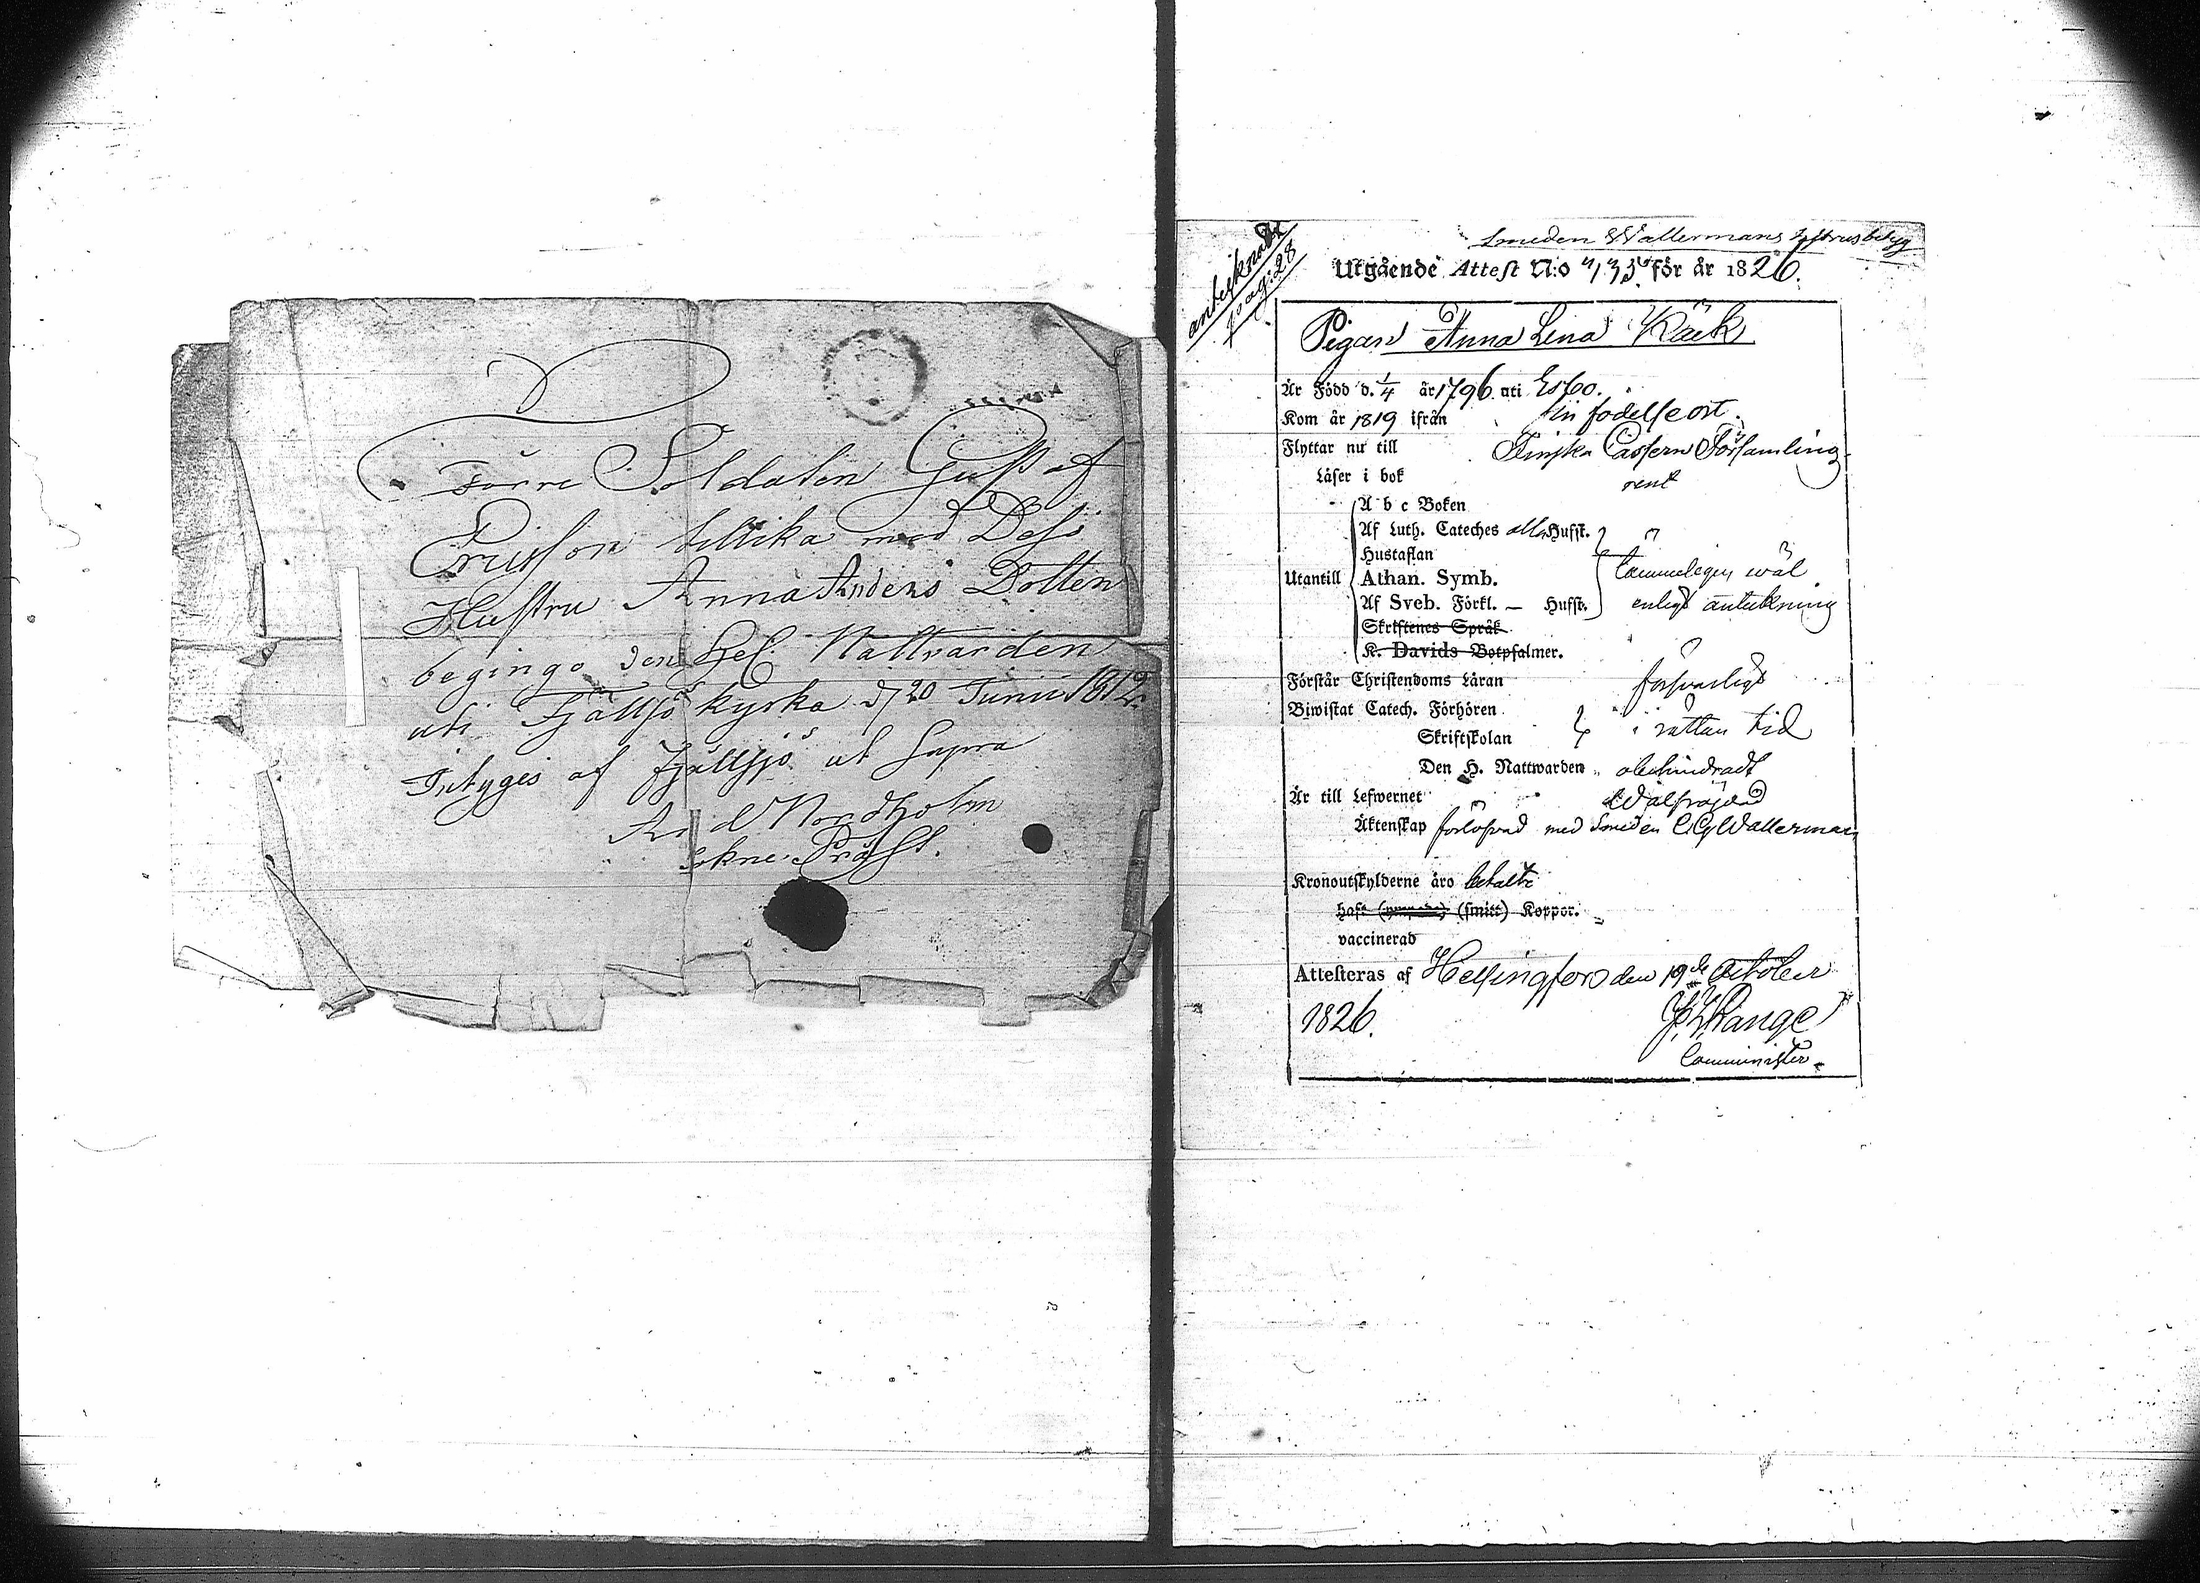 Förre Soldaten Gustaf
Ericsson tillika med Dess
Hustru Anna Anders Dotter
begingo den Hel. Nattvarden
uti Fjällsjö kyrka d 20 Junii 1812.
Intyges af Fjällsjö ut Supra
And Nordholm
Sokne Präst.
antecknadt
pag: 28
Smeden Wallermans hustrus betyg
Utgående Attest N:o för år 1826.
Pigan Anna Lena Räek
Är Född d. 1/4 år 1796 uti Esbo.
Kom år 1819 ifrån sin födelseort.
Flyttar nu till Finska Cassern Församling
Läser i bok rent
A b c Boken
Af Luth. Cateches alla Hufst.
Hustaflan
Utantill Athan. Symb. tämmeligen wäl
Af Sveb. Förkl. — Hufst. enligt anteckning
Skriftenes Språk
K. Davids Botpsalmer.
Förstår Christendoms Läran försvarligt
Biwistat Catech. Förhören
Skriftskolan i rättan tid
Den H. Nattwarden obehindradt
Är till Lefwernet Wälfräjdad
Äktenskap förlofvad med Smeden C. G. Wallerman
Kronoutskylderne äro betalte
haft (smitt) Koppor.
vaccinerad
Attesteras af Helsingfors den 19de October
1826.
Comminister